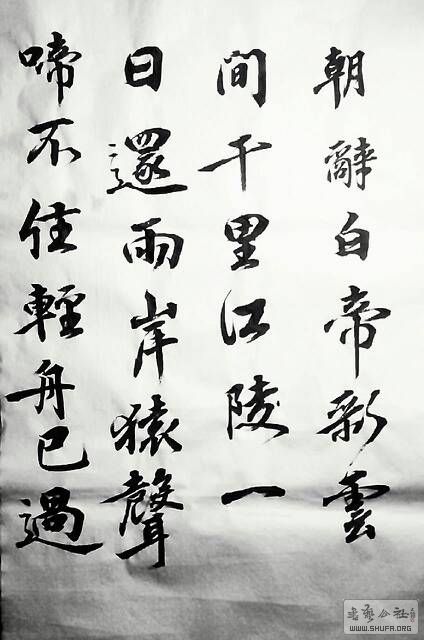 朝辭白帝彩雲
間千里江陵一
日還兩岸猿聲
啼不住輕舟已過
书艺公社
WWW.SHUFA.ORG